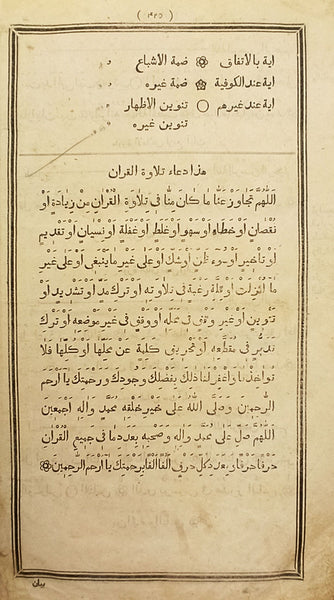 (١٩٢٥)
اية بالاتفاق ضمة الأشباع
اية عند الكوفية ضمة غيره
اية عند غيرهم تنوين الأظهار
تنوين غيره
هذا دعاء تلاوة القران
اَللّٰهُمَّ تَجَاوَزْ عَنَّا مَا كَانَ مِنَّا فِي تِلَاوَةِ الْقُرْاٰنِ مِنْ زِيَادَةٍ اَوْ
نُقْصَانٍ اَوْ خَطَاءٍ اَوْ سَهْوٍ اَوْ غَلَطٍ اَوْ غَفْلَةٍ اَوْ نِسْيَانٍ اَوْ تَقْدِيمٍ
اَوْ تَأْخِيرٍ اَوْ سُوءِ ظَنٍّ اَوْ شَكٍّ اَوْ عَلٰى غَيْرِ مَا يَنْبَغِي اَوْ عَلٰى غَيْرِ
مَا اَنْزَلْتَ اَوْ قِلَّةِ رَغْبَةٍ فِي تِلَاوَتِهِ اَوْ تَرْكِ مَدٍّ اَوْ تَشْدِيدٍ اَوْ
تَنْوِينٍ اَوْ غَيْرِ وَقْفٍ فِي مَحَلِّهِ اَوْ وَقْفٍ فِي غَيْرِ مَوْضِعِهِ اَوْ تَرْكِ
تَدَبُّرٍ فِي مُقَطَّعِهِ اَوْ تَحْرِيفِ كَلِمَةٍ عَنْ مَحَلِّهَا اَوْ كُلِّهَا فَلَا
تُؤَاخِذْنَا وَاغْفِرْ لَنَا ذٰلِكَ بِفَضْلِكَ وَجُودِكَ وَرَحْمَتِكَ يَا اَرْحَمَ
الرَّاحِمِينَ وَصَلَّى اللّٰهُ عَلٰى خَيْرِ خَلْقِهِ مُحَمَّدٍ وَاٰلِهِ اَجْمَعِينَ
اَللّٰهُمَّ صَلِّ عَلٰى مُحَمَّدٍ وَاٰلِهِ وَصَحْبِهِ بِعَدَدِ مَا فِي جَمِيعِ الْقُرْاٰنِ
حَرْفًا حَرْفًا وَبِعَدَدِ كُلِّ حَرْفٍ اَلْفًا اَلْفًا بِرَحْمَتِكَ يَا اَرْحَمَ الرَّاحِمِينَ
بيان